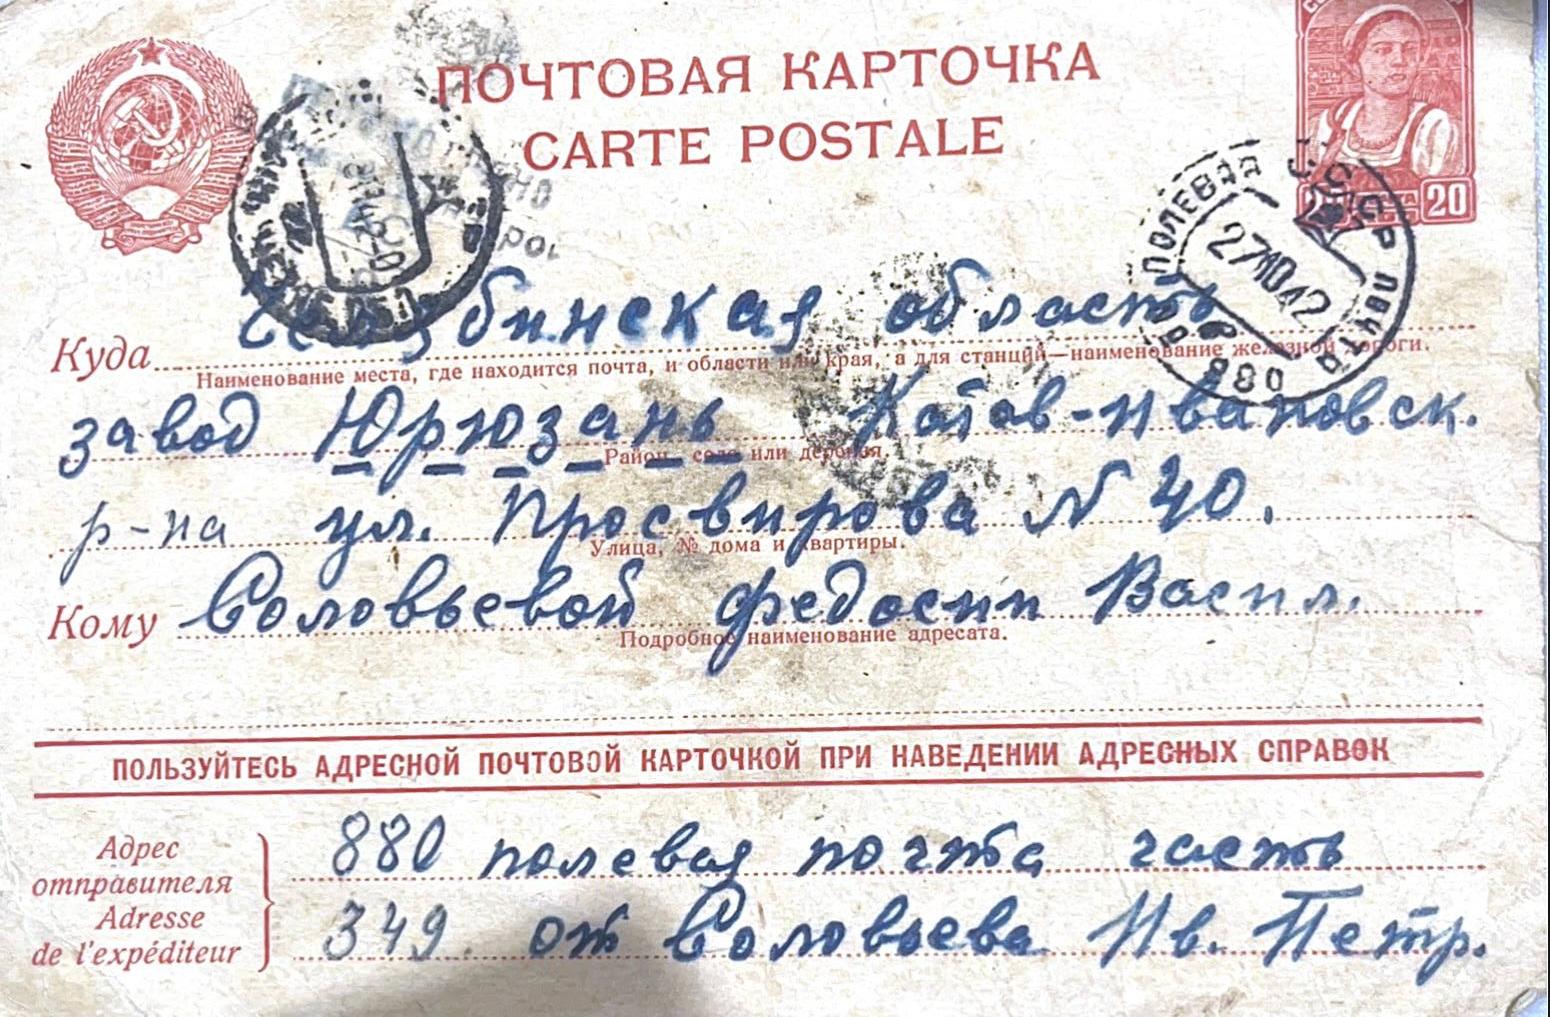 ПОЧТОВАЯ КАРТОЧКА
CARTE POSTALE
20
СССР ПОЧТА
ПОЛЕВАЯ
27 10 42
880
Куда Челябинская область
Наименование места, где находится почта, и области или края, а для станций—наименование железной дороги.
завод Юрюзань Катав-Ивановск.
Район, село или деревня.
р-на ул. Просвирова N 40.
Улица, № дома и квартиры.
Кому Соловьевой Федосии Васил.
Подробное наименование адресата.
ПОЛЬЗУЙТЕСЬ АДРЕСНОЙ ПОЧТОВОЙ КАРТОЧКОЙ ПРИ НАВЕДЕНИИ АДРЕСНЫХ СПРАВОК
Адрес отправителя
Adresse de l'expéditeur
880 полевая почта часть
349. от Соловьева Ив. Петр.